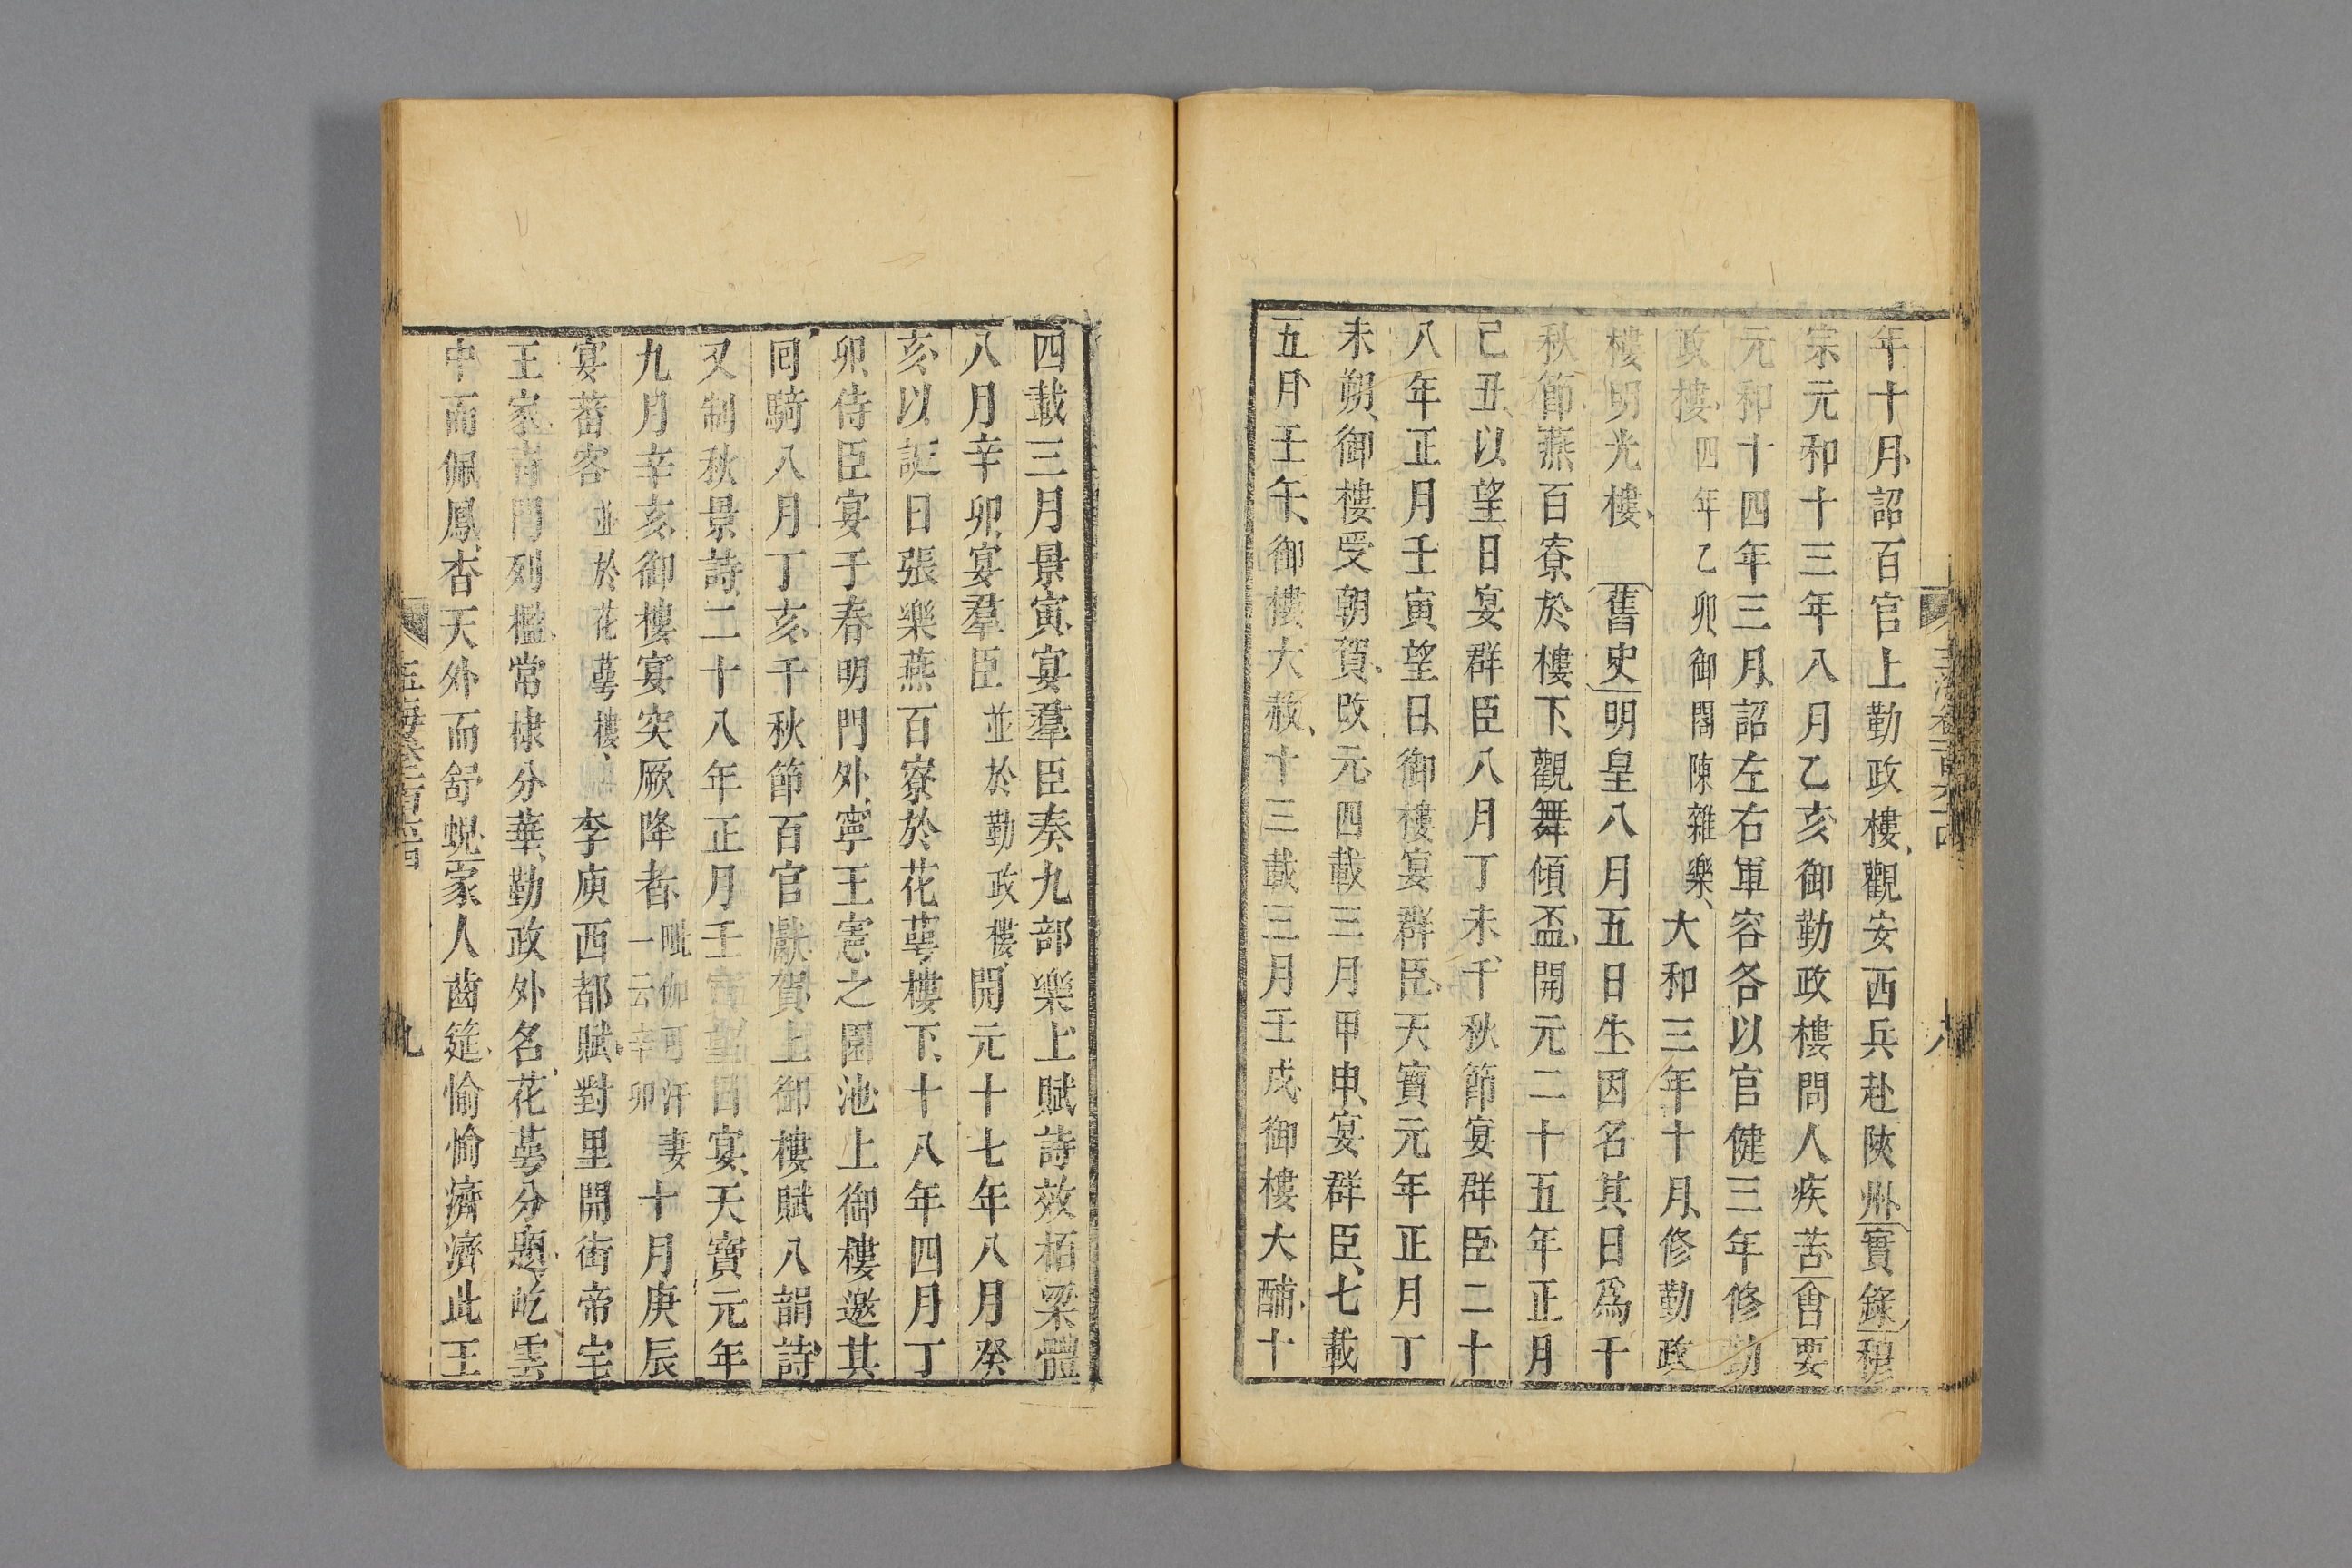 年十月詔百官上勤政樓觀安西兵赴陜州實錄穆
宗元和十三年八月乙亥御勤政樓問人疾苦會要
元和十四年三月詔左右軍容各以官健三年修勤
政樓四年乙卯御閣陳雜樂大和三年十月修勤政
樓明光樓 舊史明皇八月五日生因名其日爲千
秋節燕百寮於樓下觀舞傾盃開元二十五年正月
己丑以望日宴群臣八月丁未千秋節宴群臣二十
八年正月壬寅望日御樓宴群臣天寶元年正月丁
未朔御樓受朝賀改元四載三月甲申宴群臣七載
五月壬午御樓大赦十三載三月壬戌御樓大酺十
四載三月景寅宴羣臣奏九部樂上賦詩效栢梁體
八月辛卯宴羣臣並於勤政樓開元十七年八月癸
亥以誕日張樂燕百寮於花萼樓下十八年四月丁
卯侍臣宴于春明門外寧王憲之園池上御樓邀其
囘騎八月丁亥千秋節百官獻賀上御樓賦八韻詩
又制秋景詩二十八年正月壬寅望日宴天寶元年
九月辛亥御樓宴突厥降者毗伽可汗妻一云辛卯十月庚辰
宴蕃客並於花萼樓 李庾西都賦對里開街帝宅
王家青門列檻常棣分華勤政外名花萼分題屹雲
中而佩鳳杳天外而舒蜺家人齒筵愉愉濟濟此王